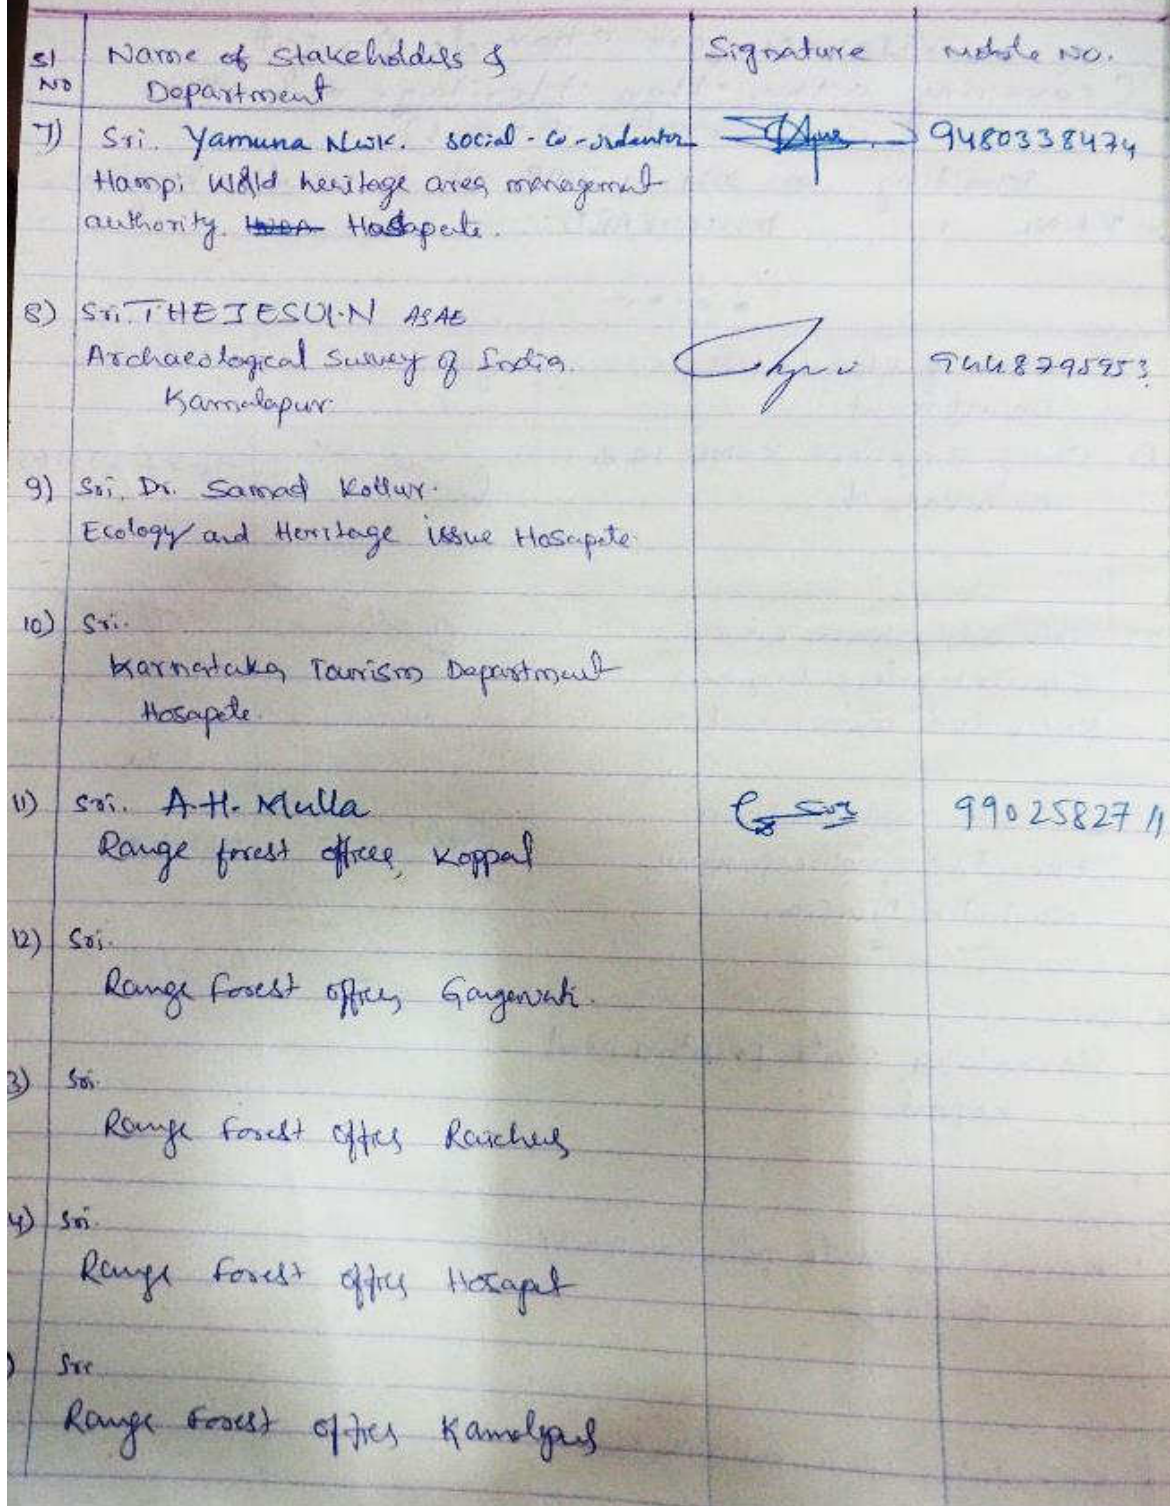 Sl No Name of Stakeholders & Department Signature Mobile No.
7) Sri. Yamuna Naik. social-co-ordanator 9480338474
Hampi World heritage area management
authority. Hosapete.
8) Sri. THEJESWI.N ASAE
Archaeological Survey of India. 9448795953
Kamalapur.
9) Sri. Dr. Samad Kottur.
Ecology and Heritage issue Hosapete
10) Sri.
Karnataka Tourism Department
Hosapete.
11) Sri. A.H. Mulla 9902582711
Range forest officer, Koppal
12) Sri.
Range Forest officer
3) Sri.
Range Forest officer Raichur
4) Sri.
Range Forest officer Hosapet
) Sri.
Range Forest officer Kamalpur